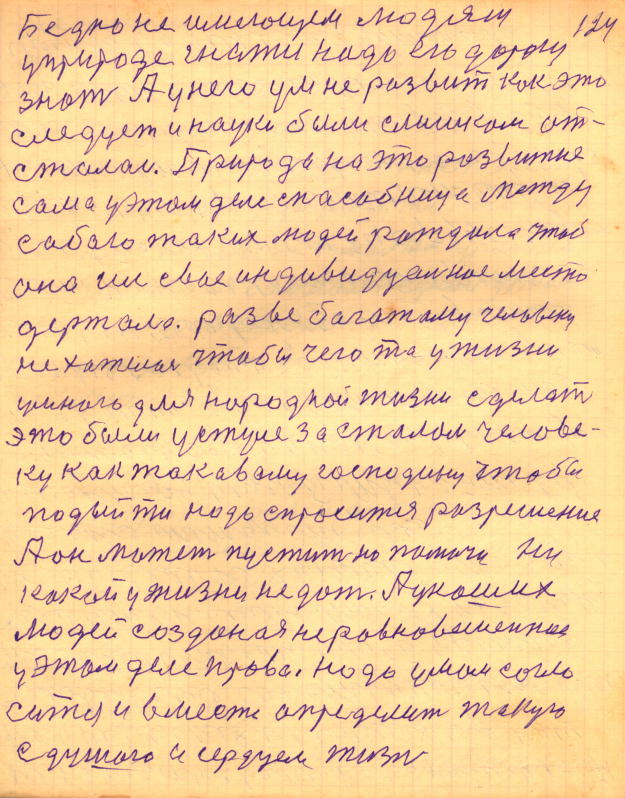 Бедно не имеющем людям 124
у природе знати надо его дорогу
знат А у него ум не развит как это
следует и науки были слишком от-
стала. Природа на это развитие
сама у этом деле способница между
собаго таких людей рождала чтоб
она их свое индивидуалное место
держала. разве богатому человеку
не хателася чтобы чего та у жизни
умного для народной жизни сделат
это были у стуле за сталом челове-
ку как такавому господину чтобы
подыйти надо спросится разрешение
А он может пустит но помочи ни
какой у жизни не дат. А у наших
людей созданая неравновешенное
у этом деле права. надо умом согла
сится и вместе определит такую
с душою и сердцем жизн